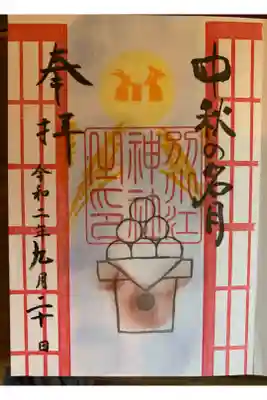 中秋の名月
別小江
神社
之印
奉拝
令和二年九月二十日